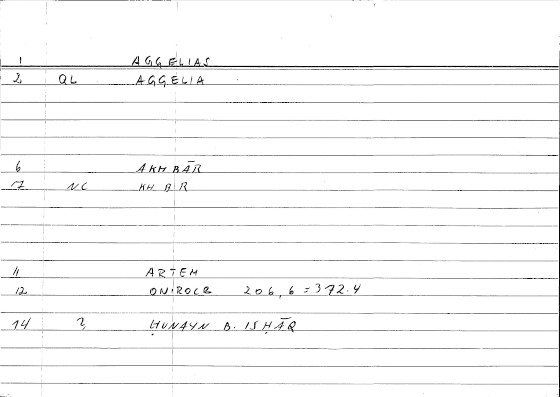 1 AGGELIAS
2 QL AGGELIA
6 AKHBĀR
17 NC KH B R
11 ARTEM
12 ONIROCR 206,6 = 372.4
14 ? ḤUNAYN B. ISḤĀQ